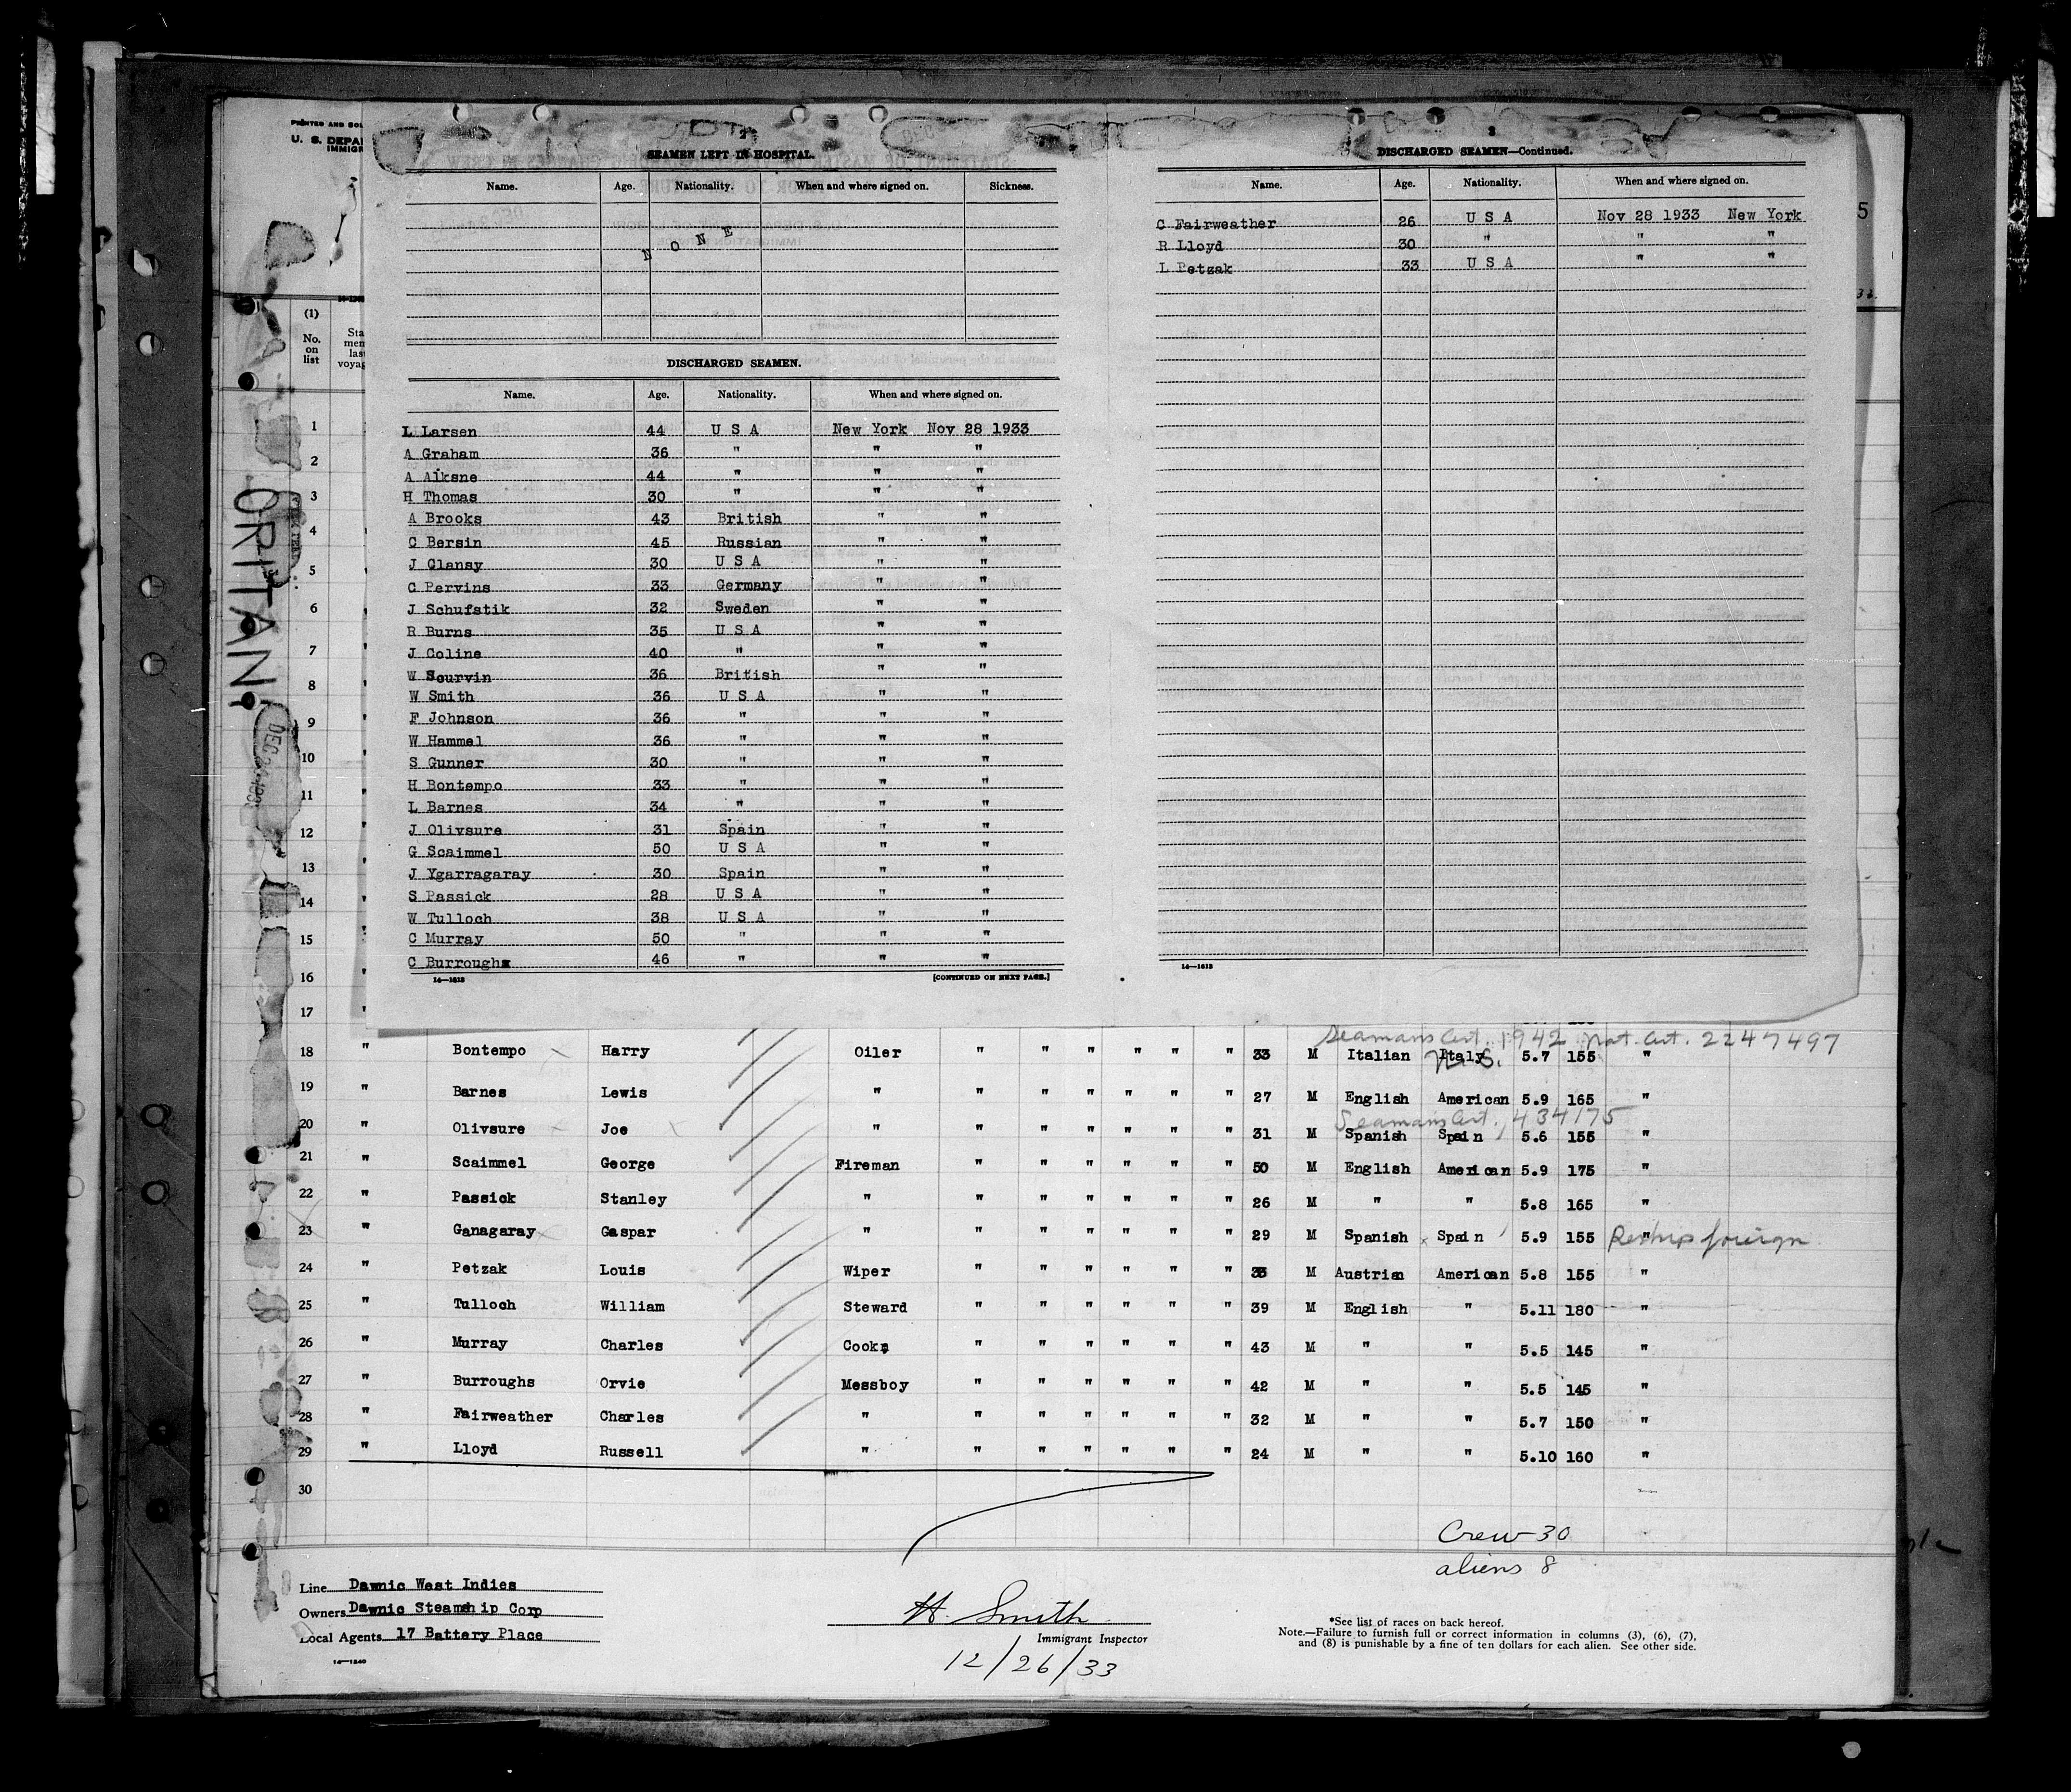 PRINTED AND SOL
U. S. DEPAR
IMMIGR
2
SEAMEN LEFT IN HOSPITAL.
Name. Age. Nationality. When and where signed on. Sickness.
NONE
DISCHARGED SEAMEN.
Name. Age. Nationality. When and where signed on.
L Larsen 44 U S A New York Nov 28 1933
A Graham 36 " " "
A Alksne 44 " " "
H Thomas 30 " " "
A Brooks 43 British " "
C Bersin 45 Russian " "
J Clansy 30 U S A " "
G Pervins 33 Germany " "
J Schufstik 32 Sweden " "
R Burns 35 U S A " "
J Coline 40 " " "
W Scurvin 36 British " "
W Smith 36 U S A " "
F Johnson 36 " " "
W Hammel 36 " " "
S Gunner 30 " " "
H Bontempo 33 " " "
L Barnes 34 " " "
J Olivsure 31 Spain " "
G Scaimmel 50 U S A " "
J Ygarragaray 30 Spain " "
S Passick 28 U S A " "
W Tulloch 38 U S A " "
C Murray 50 " " "
C Burroughs 46 " " "
14—1613 [CONTINUED ON NEXT PAGE.]
3
DISCHARGED SEAMEN—Continued.
Name. Age. Nationality. When and where signed on.
C Fairweather 26 U S A Nov 28 1933 New York
R Lloyd 30 " " "
L Petzak 33 U S A " "
14—1613
5
(1)
No. on list
Sta
men
last
voyag
ORITANI
DEC 24 193
1
2
3
4
5
6
7
8
9
10
11
12
13
14
15
16
17
Seamans Cert. 1942 Nat. Cert. 2247497
18 " Bontempo Harry Oiler " " " " " " 33 M Italian Italy U.S. 5.7 155 "
19 " Barnes Lewis " " " " " " " 27 M English American 5.9 165 "
Seamans Cert. 434175
20 " Olivsure Joe " " " " " " " 31 M Spanish Spain 5.6 155 "
21 " Scaimmel George Fireman " " " " " " 50 M English American 5.9 175 "
22 " Passick Stanley " " " " " " " 26 M " " 5.8 165 "
23 " Ganagaray Gaspar " " " " " " " 29 M Spanish Spain 5.9 155 " Reship foreign
24 " Petzak Louis Wiper " " " " " " 33 M Austrian American 5.8 155 "
25 " Tulloch William Steward " " " " " " 39 M English " 5.11 180 "
26 " Murray Charles Cook " " " " " " 43 M " " 5.5 145 "
27 " Burroughs Orvie Messboy " " " " " " 42 M " " 5.5 145 "
28 " Fairweather Charles " " " " " " " 32 M " " 5.7 150 "
29 " Lloyd Russell " " " " " " " 24 M " " 5.10 160 "
30
Crew-30
aliens 8
Line Dawnic West Indies
Owners Dawnic Steamship Corp
Local Agents 17 Battery Place
14—1240
H. Smith
Immigrant Inspector
12/26/33
*See list of races on back hereof.
Note.—Failure to furnish full or correct information in columns (3), (6), (7),
and (8) is punishable by a fine of ten dollars for each alien. See other side.